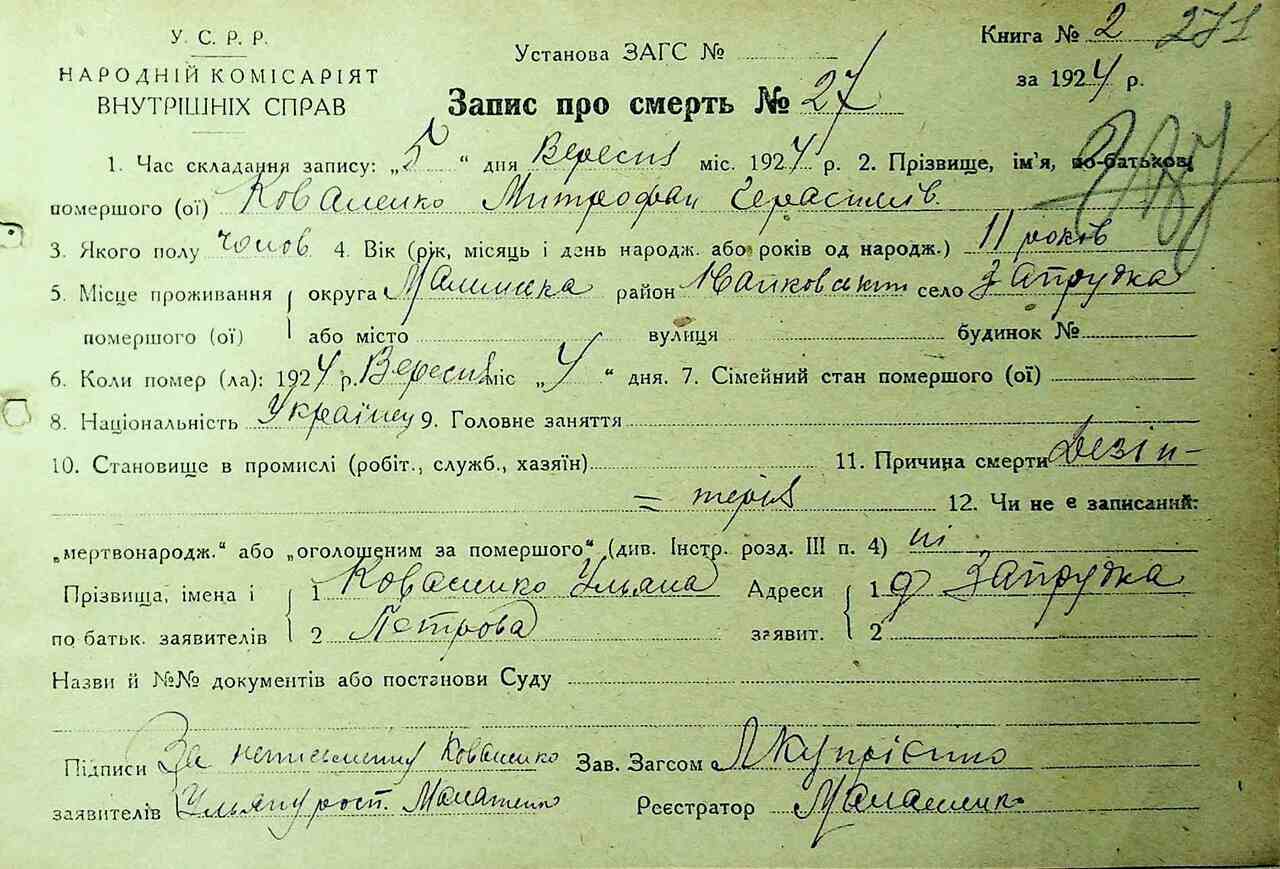 У. С. Р. Р.
НАРОДНІЙ КОМІСАРІЯТ
ВНУТРІШНІХ СПРАВ
Установа ЗАГС №
Книга № 2 271
за 1924 р.
Запис про смерть № 27
1. Час складання запису: „5 “ дня Вересня міс. 1924 р. 2. Прізвище, ім'я, по-батькові
помершого (ої) Коваленко Митрофан Герасимів
3. Якого полу чолов. 4. Вік (рік, місяць і день народж. або років од народж.) 11 років
5. Місце проживання округа Малинска район село Запрудка
помершого (ої) або місто вулиця будинок №
6. Коли помер (ла): 1924 р. Вересня міс „4 “ дня. 7. Сімейний стан помершого (ої)
8. Національність Українец 9. Головне заняття
10. Становище в промислі (робіт., служб., хазяїн) 11. Причина смерти Дезін-
= терія 12. Чи не є записаний:
„мертвонародж.“ або „оголошеним за помершого“ (див. Інстр. розд. III п. 4) ні
Прізвища, імена і 1 Коваленко Ульяна Адреси 1 д Запрудка
по батьк. заявителів 2 Петрова заявит. 2
Назви й №№ документів або постанови Суду
Підписи За неписьменну Коваленко Зав. Загсом
заявителів Ульяну росп. Малашенко Реєстратор Малашенко